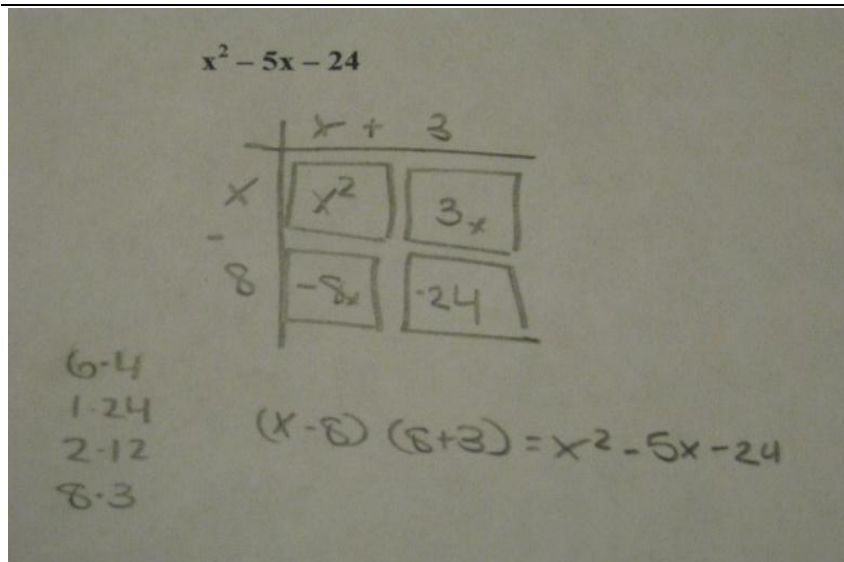 x² – 5x – 24
x + 3
x x² 3x
-
8 -8x -24
6·4
1·24
2·12
8·3
(x-8) (8+3) = x² - 5x - 24